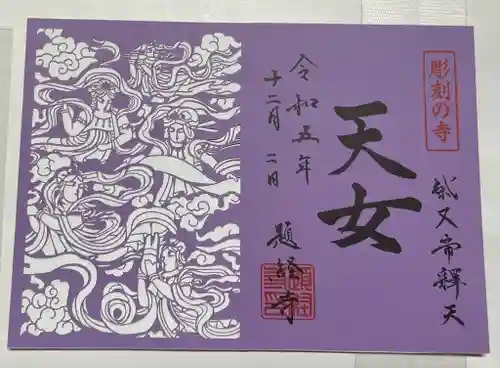 彫刻の寺
柴又帝釋天
天女
題経寺
令和五年
十二月二日